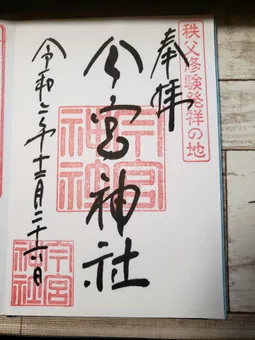 秩父修験発祥の地
奉拝
今宮神社
今宮
神社
令和二年十二月二十六日
今宮
神社